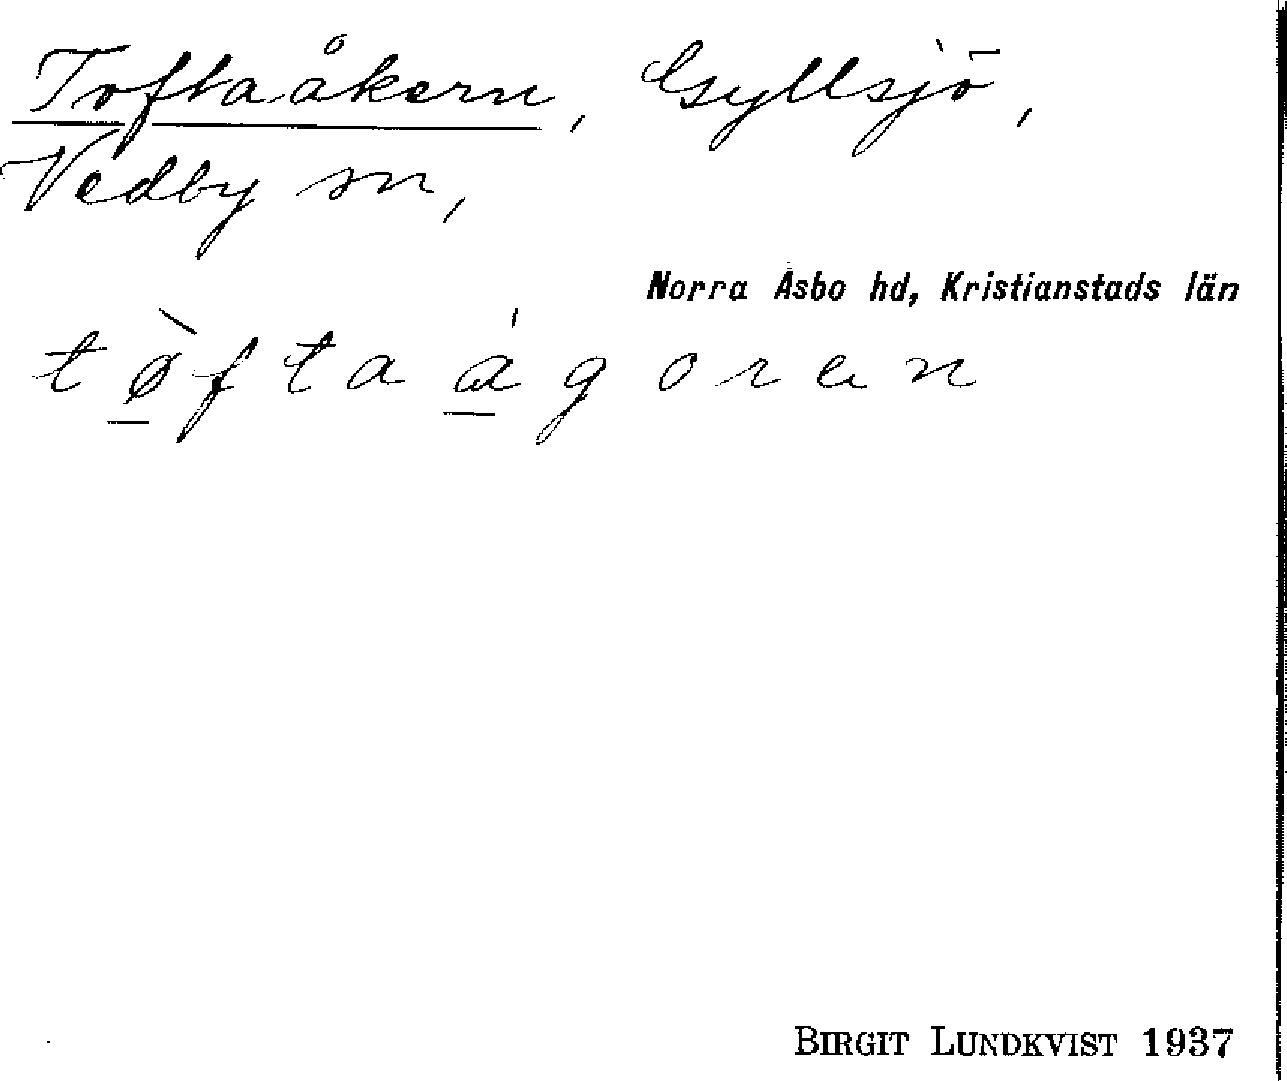 Toftaåkern, Gyllsjö,
Vedby sn,
Norra Åsbo hd, Kristianstads län
tøftaágoren
BIRGIT LUNDKVIST 1937